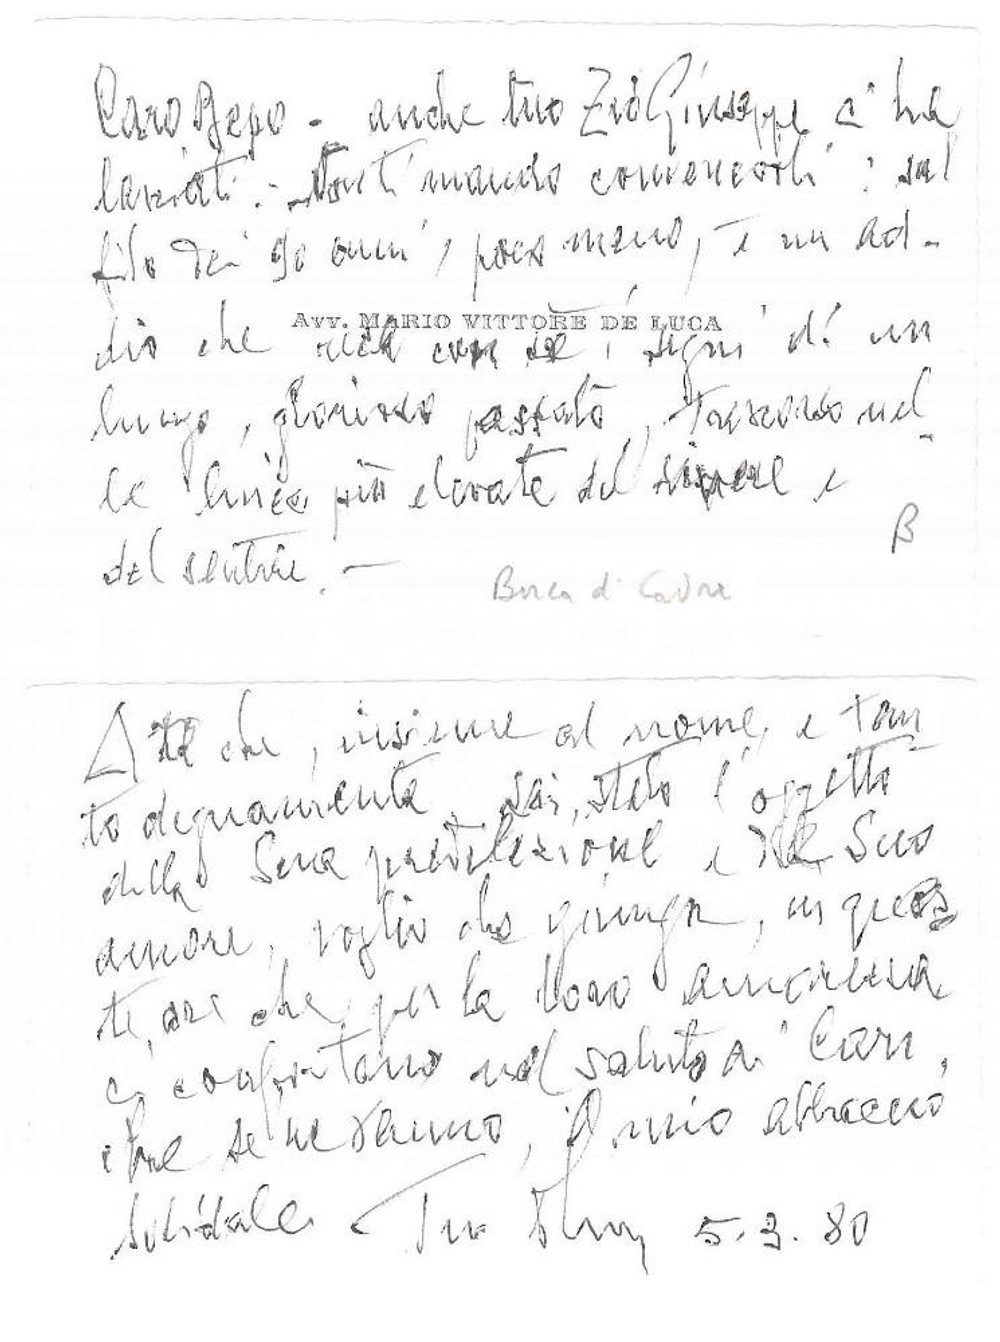 Caro Bepo - anche tuo Zio Giuseppe ci ha
lasciati. - Non ti mando : sul
filo dei 90 anni, poco meno, è un ad-
Avv. MARIO VITTORE DE LUCA
dio che con sè i segni di un
lungo, glorioso passato, trascorso nel-
le linee più elevate del sapere e
del sentire. -
B
Borca di Cadore
A te che, insieme al nome, e tan
to degnamente, sei stato l'oggetto
della Sua predilezione e del Suo
amore, voglio che giunga, in ques
te ore che per la loro amarezza
ci confortano nel saluto ai Cari,
che se ne vanno, il mio abbraccio
solidale. Tuo 5.3.80